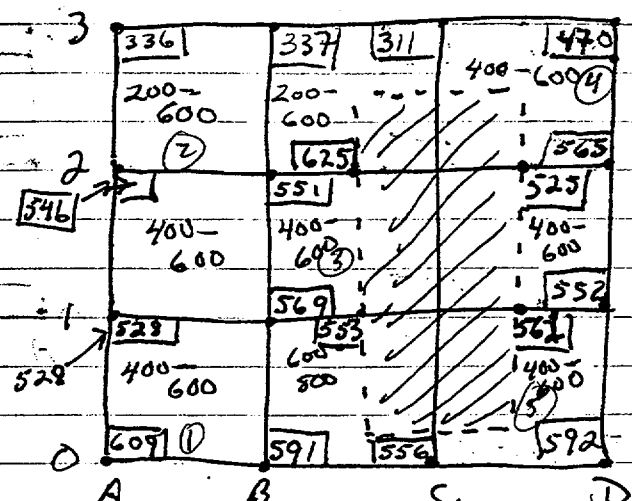 3
336 337 311 470
200- 200- 400-600 4
600 600
2 625 565
2
546 551 525
400- 400- 400-
600 600 3 600
569 552
1
528 553
528 400- 600 400-
600 800 600
5
609 1 591 556 592
0
A B C D